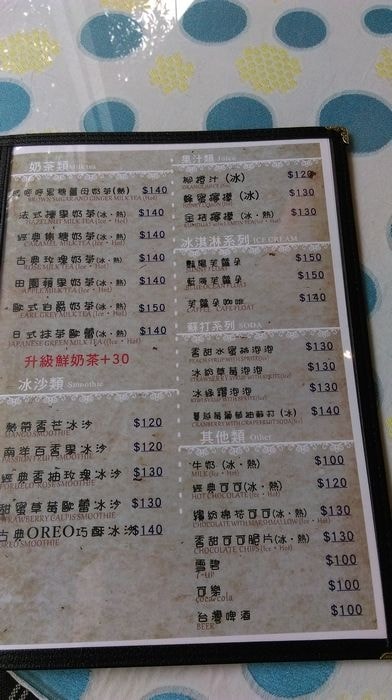 奶茶類 Milk tea
蜜糖薑母奶茶(熱) $140
BROWN SUGAR AND GINGER MILK TEA (Hot)
法式榛果奶茶(冰・熱) $140
HAZELNUT MILK TEA (Ice・Hot)
經典焦糖奶茶(冰・熱) $140
CARAMEL MILK TEA (Ice・Hot)
古典玫瑰奶茶(冰・熱) $140
ROSE MILK TEA (Ice・Hot)
田園蘋果奶茶(冰・熱) $140
MILK TEA (Ice・Hot)
歐式伯爵奶茶(冰・熱) $150
EARL GREY MILK TEA (Ice・Hot)
日式抹茶歐蕾(冰・熱) $140
JAPANESE GREEN MILK TEA (Ice・Hot)
升級鮮奶茶+30
冰沙類 Smoothie
熱帶香芒冰沙 $120
MANGO SMOOTHIE
南洋百香果冰沙 $120
SMOOTHIE
經典香柚玫瑰冰沙 $130
ROSE SMOOTHIE
甜蜜草莓歐蕾冰沙 $130
STRAWBERRY CALPIS SMOOTHIE
古典OREO巧酥冰沙 $140
OREO SMOOTHIE
果汁類 Juice
柳橙汁 (冰) $120
ORANGE JUICE
蜂蜜檸檬 (冰) $130
金桔檸檬 (冰・熱) $130
冰淇淋系列 ICE CREAM
豔陽芙蘿朵 $150
藍海芙蘿朵 $150
芙蘿朵咖啡 $140
COFFEE FLOAT
蘇打系列 SODA
香甜水蜜桃泡泡 $130
冰釣草莓泡泡 $130
冰綠釋泡泡 $130
蔓越莓葡萄柚蘇打 (冰) $140
CRANBERRY WITH GRAPEFRUIT SODA (Ice)
其他類 Other
牛奶 (冰・熱) $100
MILK (Ice・Hot)
經典可可(冰・熱) $120
HOT CHOCOLATE (Ice・Hot)
繽紛棉花可可(冰・熱) $130
CHOCOLATE WITH MARSHMALLOW (Ice・Hot)
香甜可可脆片(冰・熱) $130
CHOCOLATE CHIPS (Ice・Hot)
雪碧 $100
7-up
可樂 $100
coca cola
台灣啤酒 $100
BEER